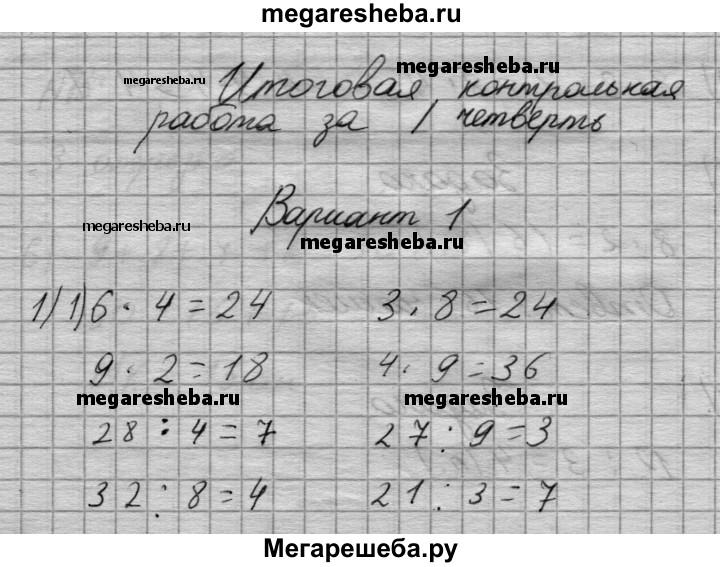 megaresheba.ru
megaresheba.ru
megaresheba.ru
Итоговая контрольная
работа за I четверть
megaresheba.ru
Вариант 1
megaresheba.ru
1) 1) 6 · 4 = 24 3 · 8 = 24
9 · 2 = 18 4 · 9 = 36
megaresheba.ru megaresheba.ru
28 : 4 = 7 27 : 9 = 3
32 : 8 = 4 21 : 3 = 7
Мегарешеба.ру